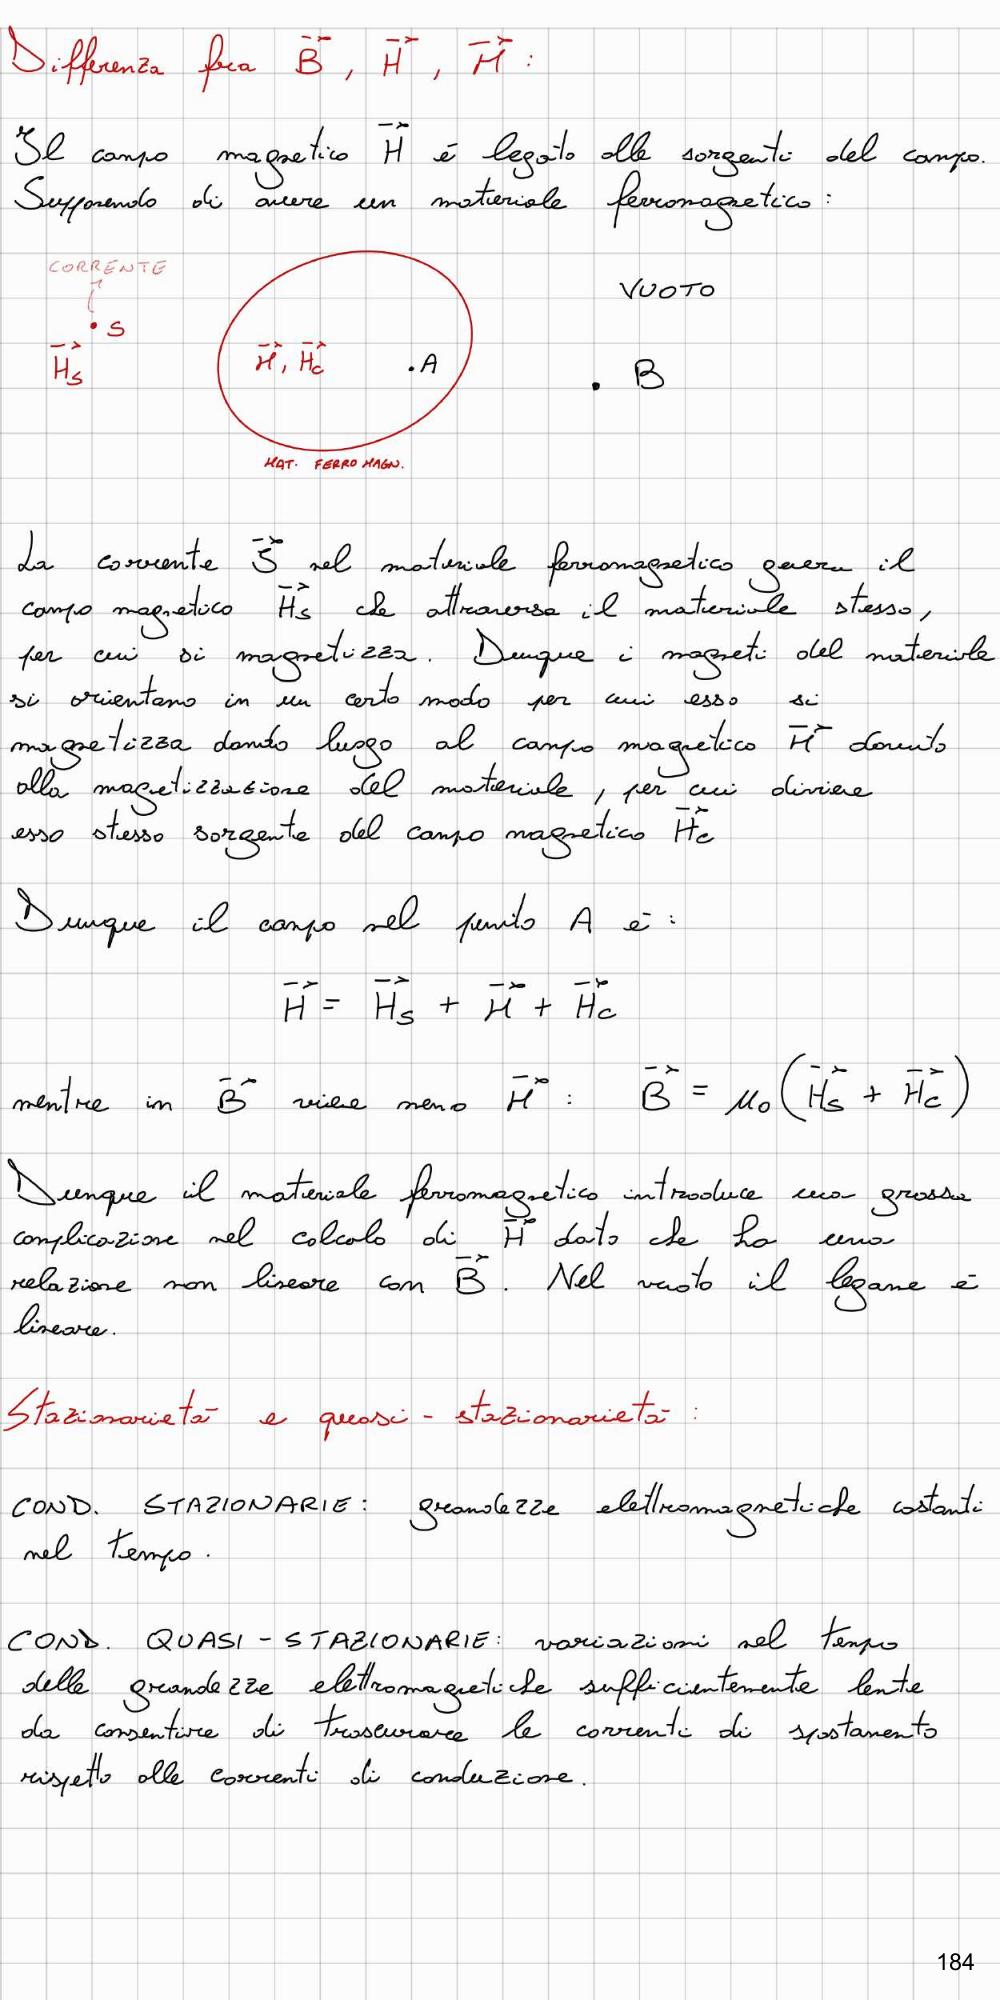 Differenza fra B⃗, H⃗, M⃗:
Il campo magnetico H⃗ è legato alle sorgenti del campo.
Supponendo di avere un materiale ferromagnetico:
CORRENTE
VUOTO
S
H⃗s
M⃗, H⃗c
.A
. B
MAT. FERROMAGN.
La corrente S⃗ nel materiale ferromagnetico genera il
campo magnetico H⃗s che attraversa il materiale stesso,
per cui si magnetizza. Dunque i magneti del materiale
si orientano in un certo modo per cui esso si
magnetizza dando luogo al campo magnetico M⃗ dovuto
alla magnetizzazione del materiale, per cui diviene
esso stesso sorgente del campo magnetico H⃗c
Dunque il campo nel punto A è:
H⃗ = H⃗s + M⃗ + H⃗c
mentre in B⃗ viene meno M⃗: B⃗ = μ₀(H⃗s + H⃗c)
Dunque il materiale ferromagnetico introduce una grossa
complicazione nel calcolo di H⃗ dato che ha una
relazione non lineare con B⃗. Nel vuoto il legame è
lineare.
Stazionarietà e quasi-stazionarietà:
COND. STAZIONARIE: grandezze elettromagnetiche costanti
nel tempo.
COND. QUASI-STAZIONARIE: variazioni nel tempo
delle grandezze elettromagnetiche sufficientemente lente
da consentire di trascurare le correnti di spostamento
rispetto alle correnti di conduzione.
184